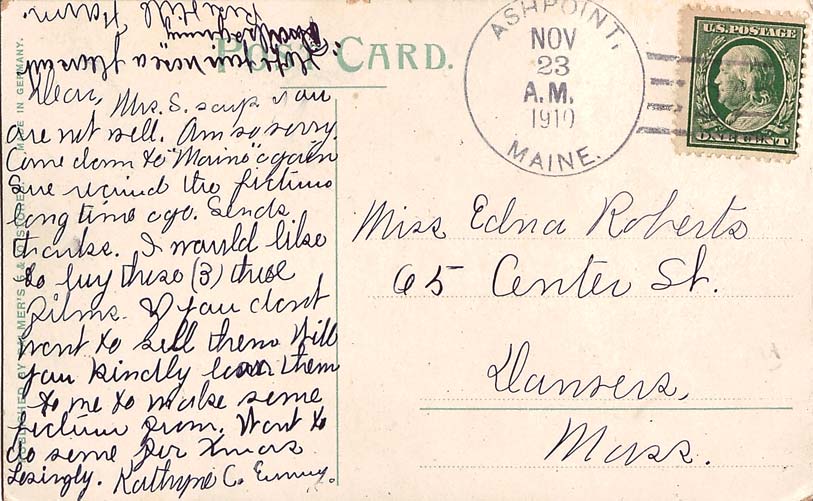 POST CARD.
ASHPOINT,
NOV
23
A.M.
1910
MAINE.
U.S. POSTAGE
ONE CENT
MADE IN GERMANY.
Rose Hill Farm.
Dear, Mrs. S. says you
are not well. Am so sorry.
Come down to "Maine" again
we received the pictures
long time ago. Sends
thanks. I would like
to buy those (3) three
films. If you dont
want to sell them Will
you kindly loan them
to me to make some
picture from. Want to
do some for Xmas
Lovingly. Kathryne C.
Miss Edna Roberts
65 Center St.
Danvers,
Mass.